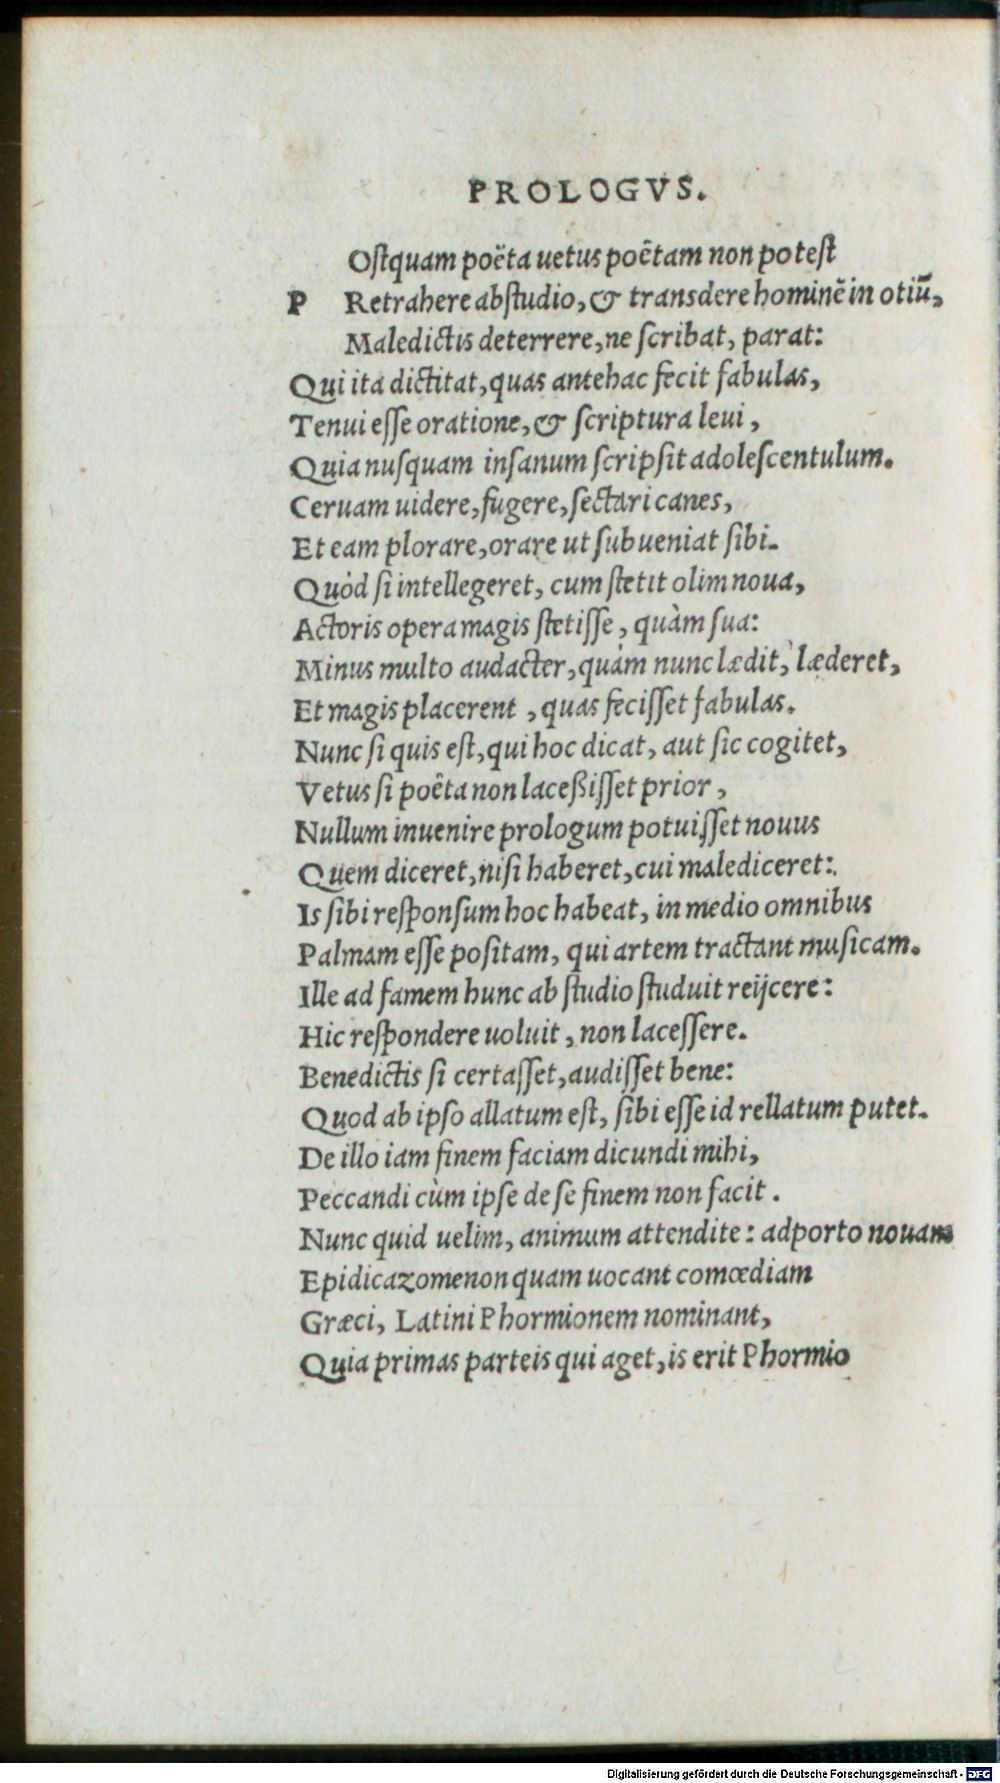 PROLOGVS.
Oſtquam poëta uetus poëtam non poteſt
P Retrahere ab ſtudio, & transdere hominē in otiū,
Maledictis deterrere, ne ſcribat, parat:
Qui ita dictitat, quas antehac fecit fabulas,
Tenui eſſe oratione, & ſcriptura leui,
Quia nuſquam inſanum ſcripſit adoleſcentulum.
Ceruam uidere, fugere, ſectari canes,
Et eam plorare, orare ut ſubueniat ſibi.
Quòd ſi intellegeret, cum ſtetit olim noua,
Actoris opera magis ſtetiſſe, quàm ſua:
Minus multo audacter, quàm nunc lædit, læderet,
Et magis placerent, quas feciſſet fabulas.
Nunc ſi quis eſt, qui hoc dicat, aut ſic cogitet,
Vetus ſi poëta non laceßiſſet prior,
Nullum inuenire prologum potuiſſet nouus
Quem diceret, niſi haberet, cui malediceret:
Is ſibi reſponſum hoc habeat, in medio omnibus
Palmam eſſe poſitam, qui artem tractant muſicam.
Ille ad famem hunc ab ſtudio ſtuduit reijcere:
Hic reſpondere uoluit, non laceſſere.
Benedictis ſi certaſſet, audiſſet bene:
Quod ab ipſo allatum eſt, ſibi eſſe id rellatum putet.
De illo iam finem faciam dicundi mihi,
Peccandi cùm ipſe de ſe finem non facit.
Nunc quid uelim, animum attendite: adporto nouam
Epidicazomenon quam uocant comœdiam
Græci, Latini Phormionem nominant,
Quia primas parteis qui aget, is erit Phormio
Digitalisierung gefördert durch die Deutsche Forschungsgemeinschaft - DFG